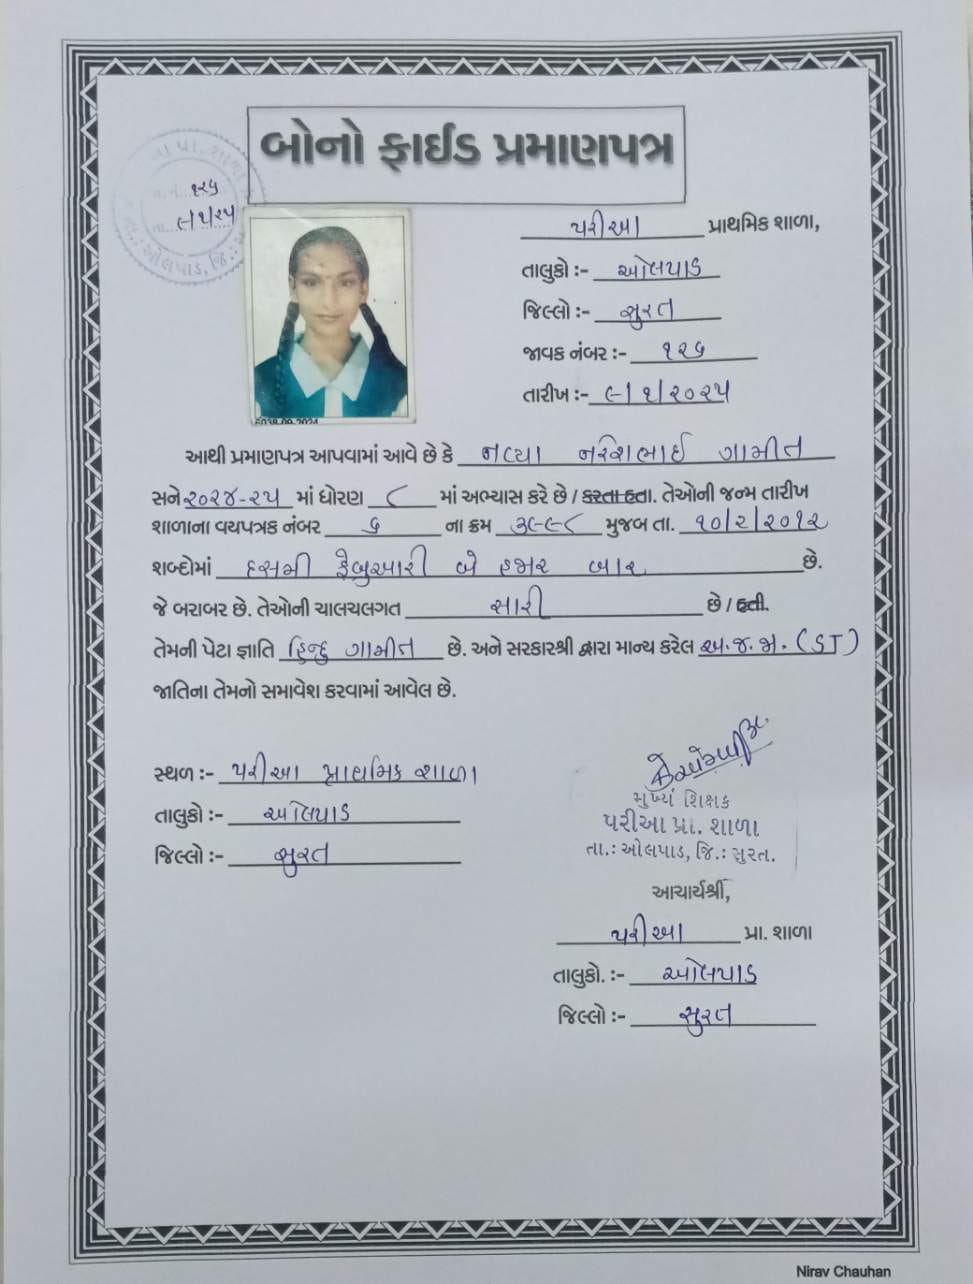 બોનોફાઈડ પ્રમાણપત્ર
૧૨૬
૯/૧/૨૫
ઓલપાડ, જિ.
પરીઆ પ્રાથમિક શાળા,
તાલુકો :- ઓલપાડ
જિલ્લો :- સુરત
જાવક નંબર :- ૧૨૬
તારીખ :- ૯/૧/૨૦૨૫
6038 09 2024
આથી પ્રમાણપત્ર આપવામાં આવે છે કે નવ્યા નરેશભાઈ ગામીત
સને ૨૦૨૪-૨૫ માં ધોરણ ૮ માં અભ્યાસ કરે છે / કરતા હતા. તેઓની જન્મ તારીખ
શાળાના વયપત્રક નંબર ૬ ના ક્રમ ૩૯૯૮ મુજબ તા. ૧૦/૨/૨૦૧૨
શબ્દોમાં દસમી ફેબ્રુઆરી બે હજાર બાર છે.
જે બરાબર છે. તેઓની ચાલચલગત સારી છે / હતી.
તેમની પેટા જ્ઞાતિ હિન્દુ ગામીત છે. અને સરકારશ્રી દ્વારા માન્ય કરેલ અ.જ.જા. (ST)
જાતિના તેમનો સમાવેશ કરવામાં આવેલ છે.
સ્થળ :- પરીઆ પ્રાથમિક શાળા
તાલુકો :- ઓલપાડ
જિલ્લો :- સુરત
મુખ્ય શિક્ષક
પરીઆ પ્રા. શાળા
તા.: ઓલપાડ, જિ.: સુરત.
આચાર્યશ્રી,
પરીઆ પ્રા. શાળા
તાલુકો. :- ઓલપાડ
જિલ્લો :- સુરત
Nirav Chauhan